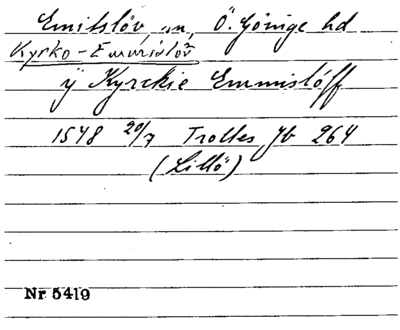 Emitslöv, sn, Ö. Göinge hd
Kyrko-Emmislöv
ÿ Kyrckie Emmislöff
1548 20/7 Trolles Jb 264
(Lillö)
Nr 5419